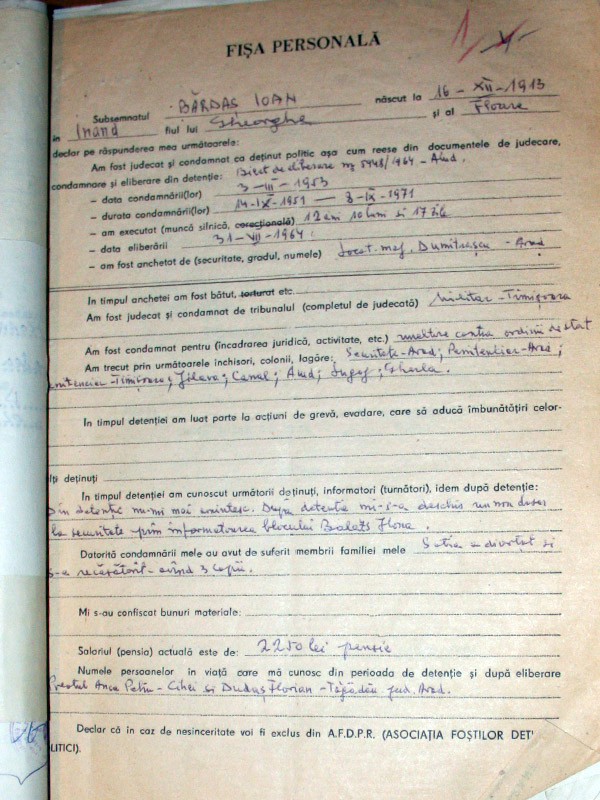 1
FIŞA PERSONALĂ
Subsemnatul BĂRDAS IOAN născut la 16 - XII - 1913
în Inand fiul lui Gheorghe şi al Floare
declar pe răspunderea mea următoarele:
Am fost judecat şi condamnat ca deţinut politic aşa cum reese din documentele de judecare,
condamnare şi eliberare din detenţie: Bilet de eliberare nr 5948/1964 - Aiud.
- data condamnării(lor) 3 - III - 1953
- durata condamnării(lor) 14-IX-1951 — 8-IX-1971
- am executat (muncă silnică, corecţională) 12 ani 10 luni si 17 zile
- data eliberării 31 - VII - 1964.
- am fost anchetat de (securitate, gradul, numele) Locot. maj. Dumitraşcu - Arad
În timpul anchetei am fost bătut, torturat etc.
Am fost judecat şi condamnat de tribunalul (completul de judecată) Militar - Timişoara
Am fost condamnat pentru (încadrarea juridică, activitate, etc.) uneltire contra ordinii de stat
Am trecut prin următoarele închisori, colonii, lagăre: Securitate-Arad; Penitenciar-Arad;
Timişoara; Jilava; Canal; Aiud; Lugoj; Gherla.
În timpul detenţiei am luat parte la acţiuni de grevă, evadare, care să aducă îmbunătăţiri celor-
lţi deţinuţi
În timpul detenţiei am cunoscut următorii deţinuţi, informatori (turnători), idem după detenţie:
Din detentie nu-mi mai amintesc. După detentie mi-s-a deschis un nou dosar
la securitate prin informatoarea blocului Balats Ilona.
Datorită condamnării mele au avut de suferit membrii familiei mele Sotia - a divortat si
s-a recăsătorit - avind 3 copii.
Mi s-au confiscat bunuri materiale:
Salariul (pensia) actuală este de: 2250 lei pensie
Numele persoanelor în viaţă care mă cunosc din perioada de detenţie şi după eliberare
Preotul Anca Petru - si Duduş Florian - jud. Arad.
Declar că în caz de nesinceritate voi fi exclus din A.F.D.P.R. (ASOCIAŢIA FOŞTILOR DEŢ
LITICI).